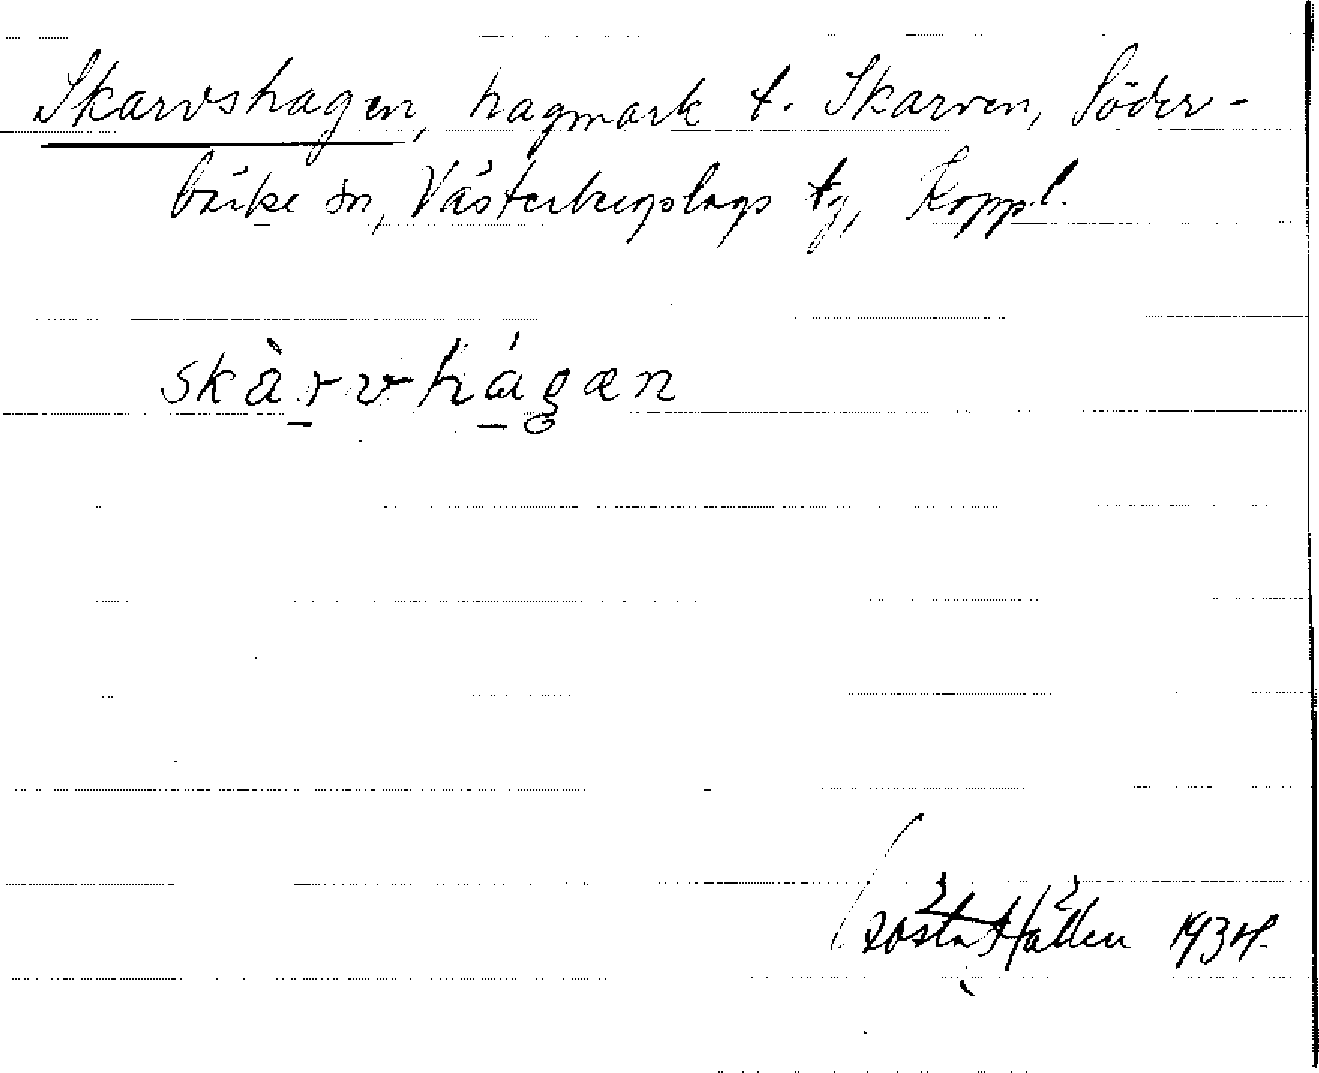 Skarvshagen, hagmark t. Skarven, Söder-
bärke sn, Västerbergslags tg, Koppl.
skàrvhágæn
Gösta Hållén 1934.